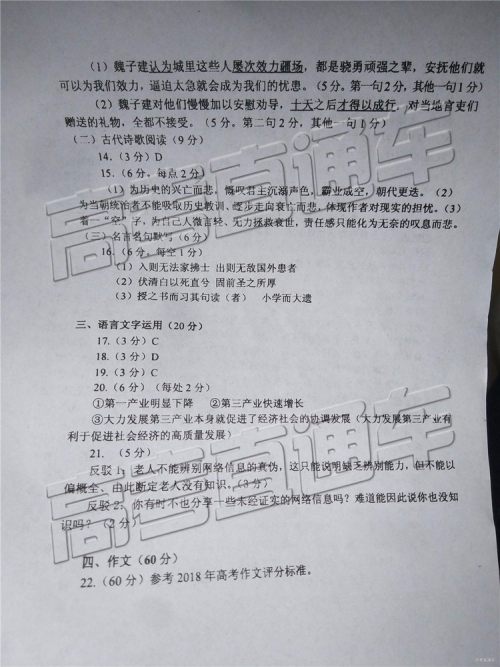 (1) 魏子建认为城里这些人屡次效力疆场，都是骁勇顽强之辈，安抚他们就
可以为我们效力，逼迫太急就会成为我们的忧患。（5分。第一句2分，其他一句1分）
(2) 魏子建对他们慢慢加以安慰劝导，十天之后才得以成行，对当地官吏们
赠送的礼物，全都不接受。（5分。第二句2分，其他一句1分）
（二）古代诗歌阅读（9分）
14.（3分）D
15.（6分，每点2分）
(1) 为历史的兴亡而悲，慨叹君主沉溺声色，霸业成空，朝代更迭。(2)
为当朝统治者不能吸取历史教训，逐步走向衰亡而悲，体现作者对现实的担忧。(3)
着一“空”字，为自己人微言轻、无力拯救衰世，责任感只能化为无奈的叹息而悲。
（三）名言名句默写（6分）
16.（6分，每空1分）
(1) 入则无法家拂士 出则无敌国外患者
(2) 伏清白以死直兮 固前圣之所厚
(3) 授之书而习其句读（者） 小学而大遗
三、语言文字运用（20分）
17.（3分）C
18.（3分）D
19.（3分）C
20.（6分）（每处2分）
①第一产业明显下降 ②第三产业快速增长
③大力发展第三产业本身就促进了经济社会的协调发展（大力发展第三产业有
利于促进社会经济的高质量发展）
21.（5分）
反驳1：老人不能辨别网络信息的真伪，这只能说明缺乏辨别能力，但不能以
偏概全、由此断定老人没有知识。（3分）
反驳2：你有时不也分享一些未经证实的网络信息吗？难道能因此说你也没知
识吗？（2分）
四、作文（60分）
22.（60分）参考2018年高考作文评分标准。
高考直通车
高考直通车